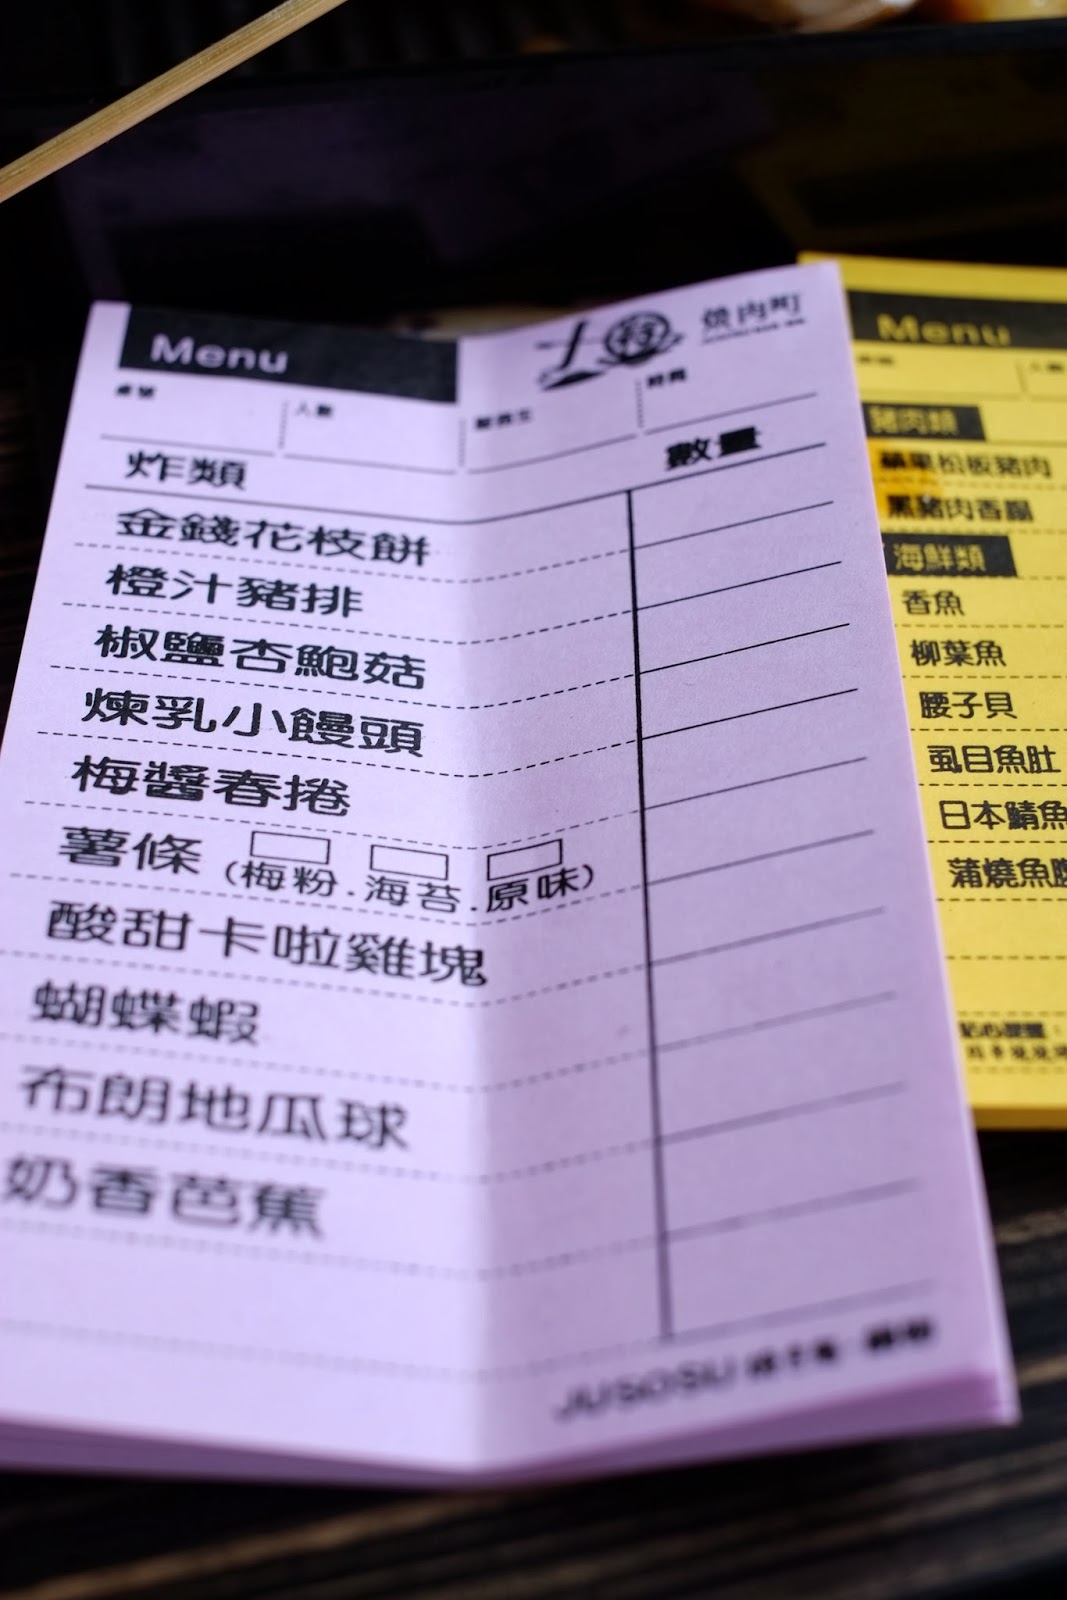 Menu
燒肉町
桌號
人數
服務生
時間
炸類
數量
金錢花枝餅
橙汁豬排
椒鹽杏鮑菇
煉乳小饅頭
梅醬春捲
薯條 (梅粉.海苔.原味)
酸甜卡啦雞塊
蝴蝶蝦
布朗地瓜球
奶香芭蕉
JUSOSU
Menu
豬肉類
蘋果松板豬肉
黑豬肉香腸
海鮮類
香魚
柳葉魚
腰子貝
虱目魚肚
日本鯖魚
蒲燒魚腹
貼心提醒：